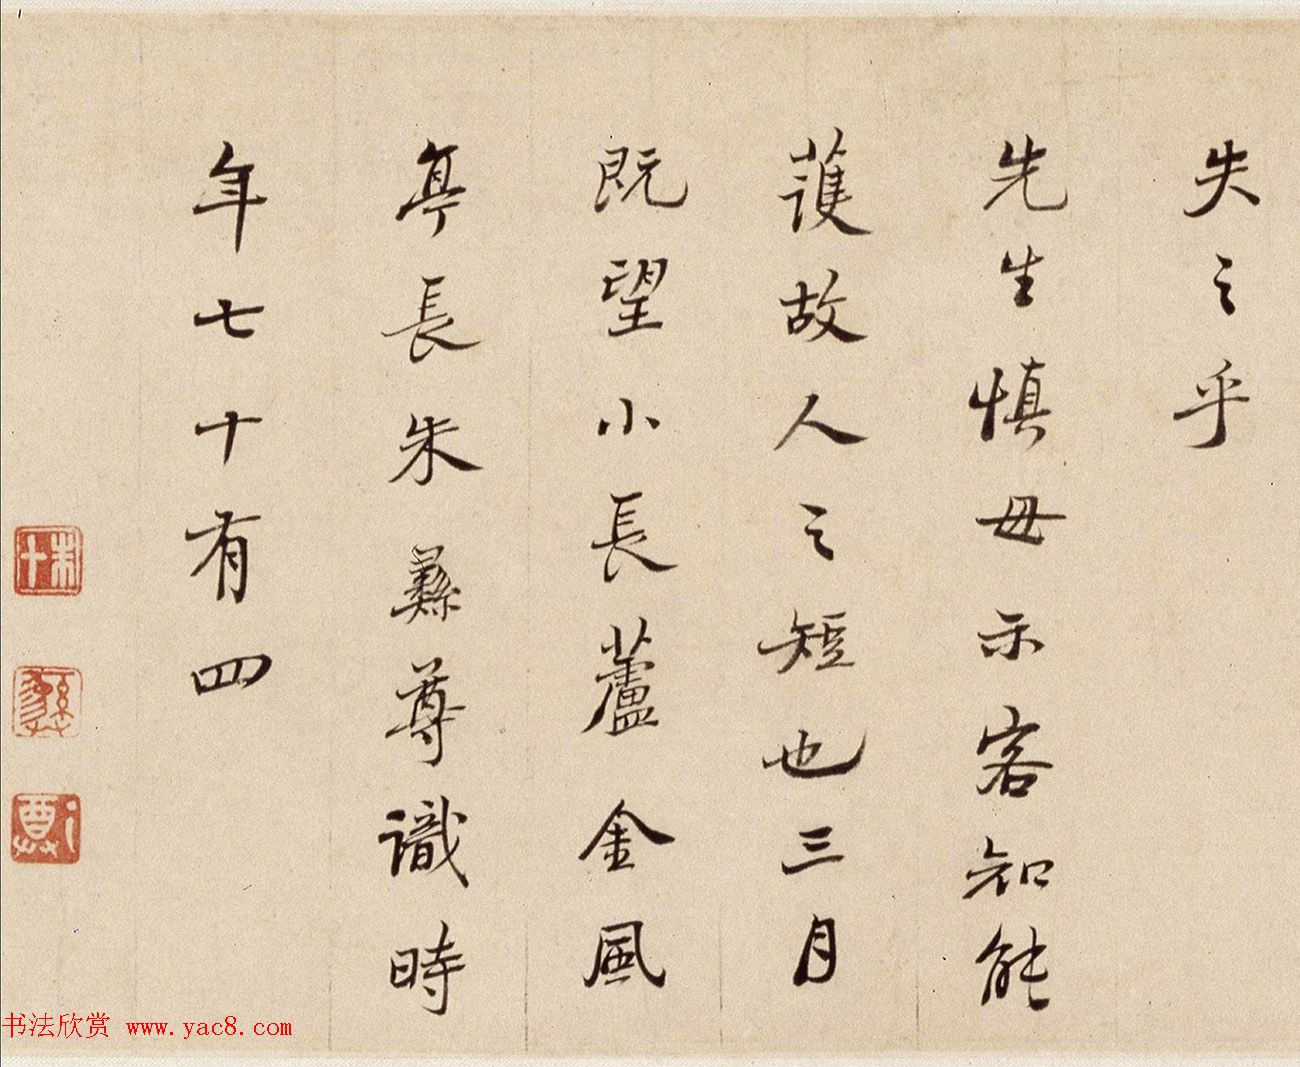 失之乎
先生慎毋示客知能
護故人之短也三月
既望小長蘆金風
亭長朱彝尊識時
年七十有四
朱十
彝
尊
书法欣赏 www.yac8.com